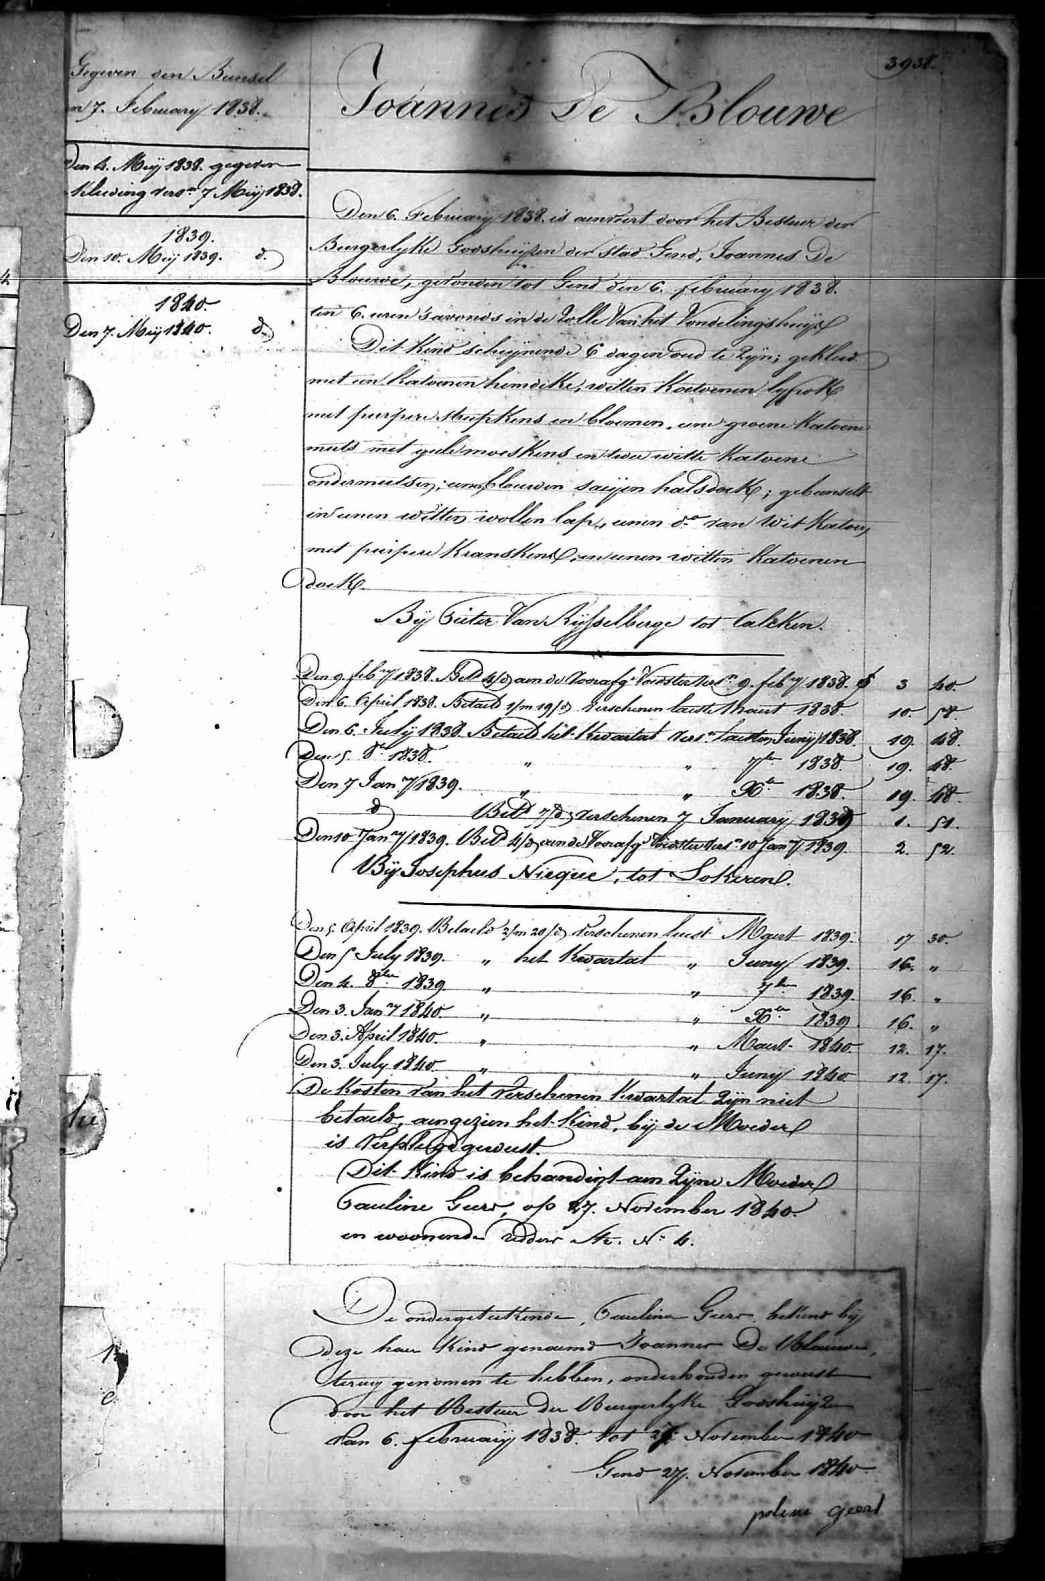 3938.
Joannes De Blouwe
Gegeven den Bunsel
en 7. February 1838.
Den 4. Meij 1838. gegeven
Kleeding vers.n 7 Meij 1838.
1839.
Den 10. Meij 1839. d.o
1840.
Den 7. Meij 1840. d.o
Den 6. February 1838. is aenveirt door het Bestuer der
Burgerlyke Godshuijzen der Stad Gend, Joannes De
Blouwe, gevonden tot Gend den 6. february 1838.
ten 6. uren s'avonds in de Rolle van het Vondelingshuijs
Dit Kind schijnende 6 dagen oud te zijn; gekleed
met een katoenen hemdeke, witten katoenen
met purpere streepkens en bloemen, eene groene katoene
muts met geele moeskens en twee witte katoene
ondermutsen; eenen blouwen saijen halsdoek; gebunselt
in eenen witten wollen lap, eenen d.o van wit katoen
met purpere kranskens, en eenen witten katoenen
doek.
Bij Pieter Van Rijsselberge tot Calcken.
Den 9. feb.ry 1838. Bet.d 4/d aen de Voorafg.e Voedster vers.n 9. feb.ry 1838. f 3 40.
Den 6. April 1838. Betaeld 1/m 19/d verschenen laeste Maert 1838. 10. 58.
Den 6. July 1838. Betaeld het kwartael vers.n laesten Juny 1838. 19. 48.
Den 5. 8.r 1838. " " 7.br 1838 19. 48.
Den 7 Jan.ry 1839. " " X.br 1838. 19. 48.
d.o Bet.d 7/d verschenen 7 January 1839 1. 51.
Den 10 Jan.ry 1839. Bet.d 4/d aen de Voorafg.e Voedster vers.n 10 Jan.ry 1839. 2. 52.
Bij Josephus Nieque, tot Lokeren.
Den 5. April 1839. Betaeld 2/m 20/d verschenen leest Maert 1839. 17 30.
Den 5 July 1839. " het kwartael " Juny 1839. 16. "
Den 4. 8.ber 1839 " " 7.br 1839. 16. "
Den 3. Jan.ry 1840. " " X.br 1839 16. "
Den 3. April 1840. " " Maert 1840 12. 17.
Den 3. July 1840. " " Juny 1840 12. 17.
De kosten van het verschenen kwartael zijn niet
betaeld, aengezien het kind, bij de Moeder
is verpleegd geweest.
Dit Kind is behandigt aen zijne Moeder
Pauline Geers, op 27. November 1840.
en woonende ridder str. N.o 4.
De ondergeteekende, Pauline Geers bekend bij
deze haer kind genaemd Joannes De Blauwe,
terug genomen te hebben, onderhouden geweest
door het Bestuer der Burgerlyke Godshuijzen
van 6. february 1838. tot 27 November 1840
Gend 27. November 1840
poline geers